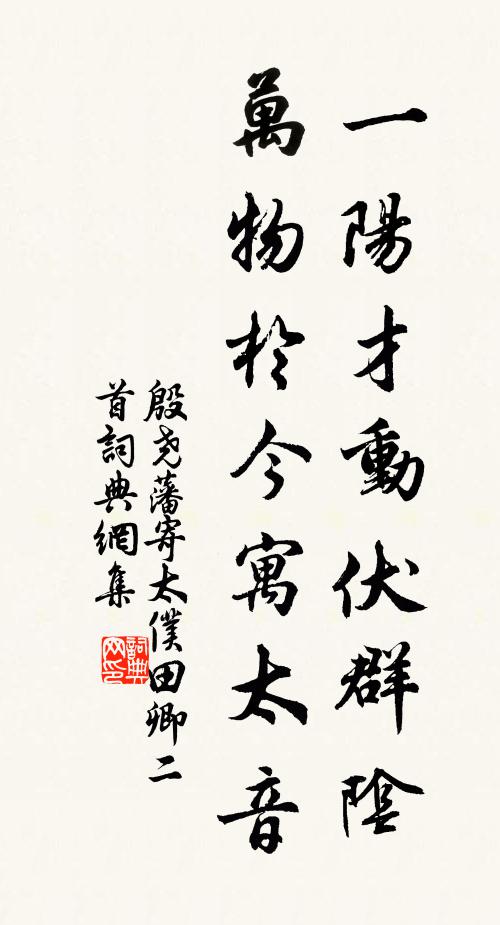 一陽才動伏群陰
萬物於今寓太音
殷尧藩寄太僕田卿二
首詞典網集
詞典网印